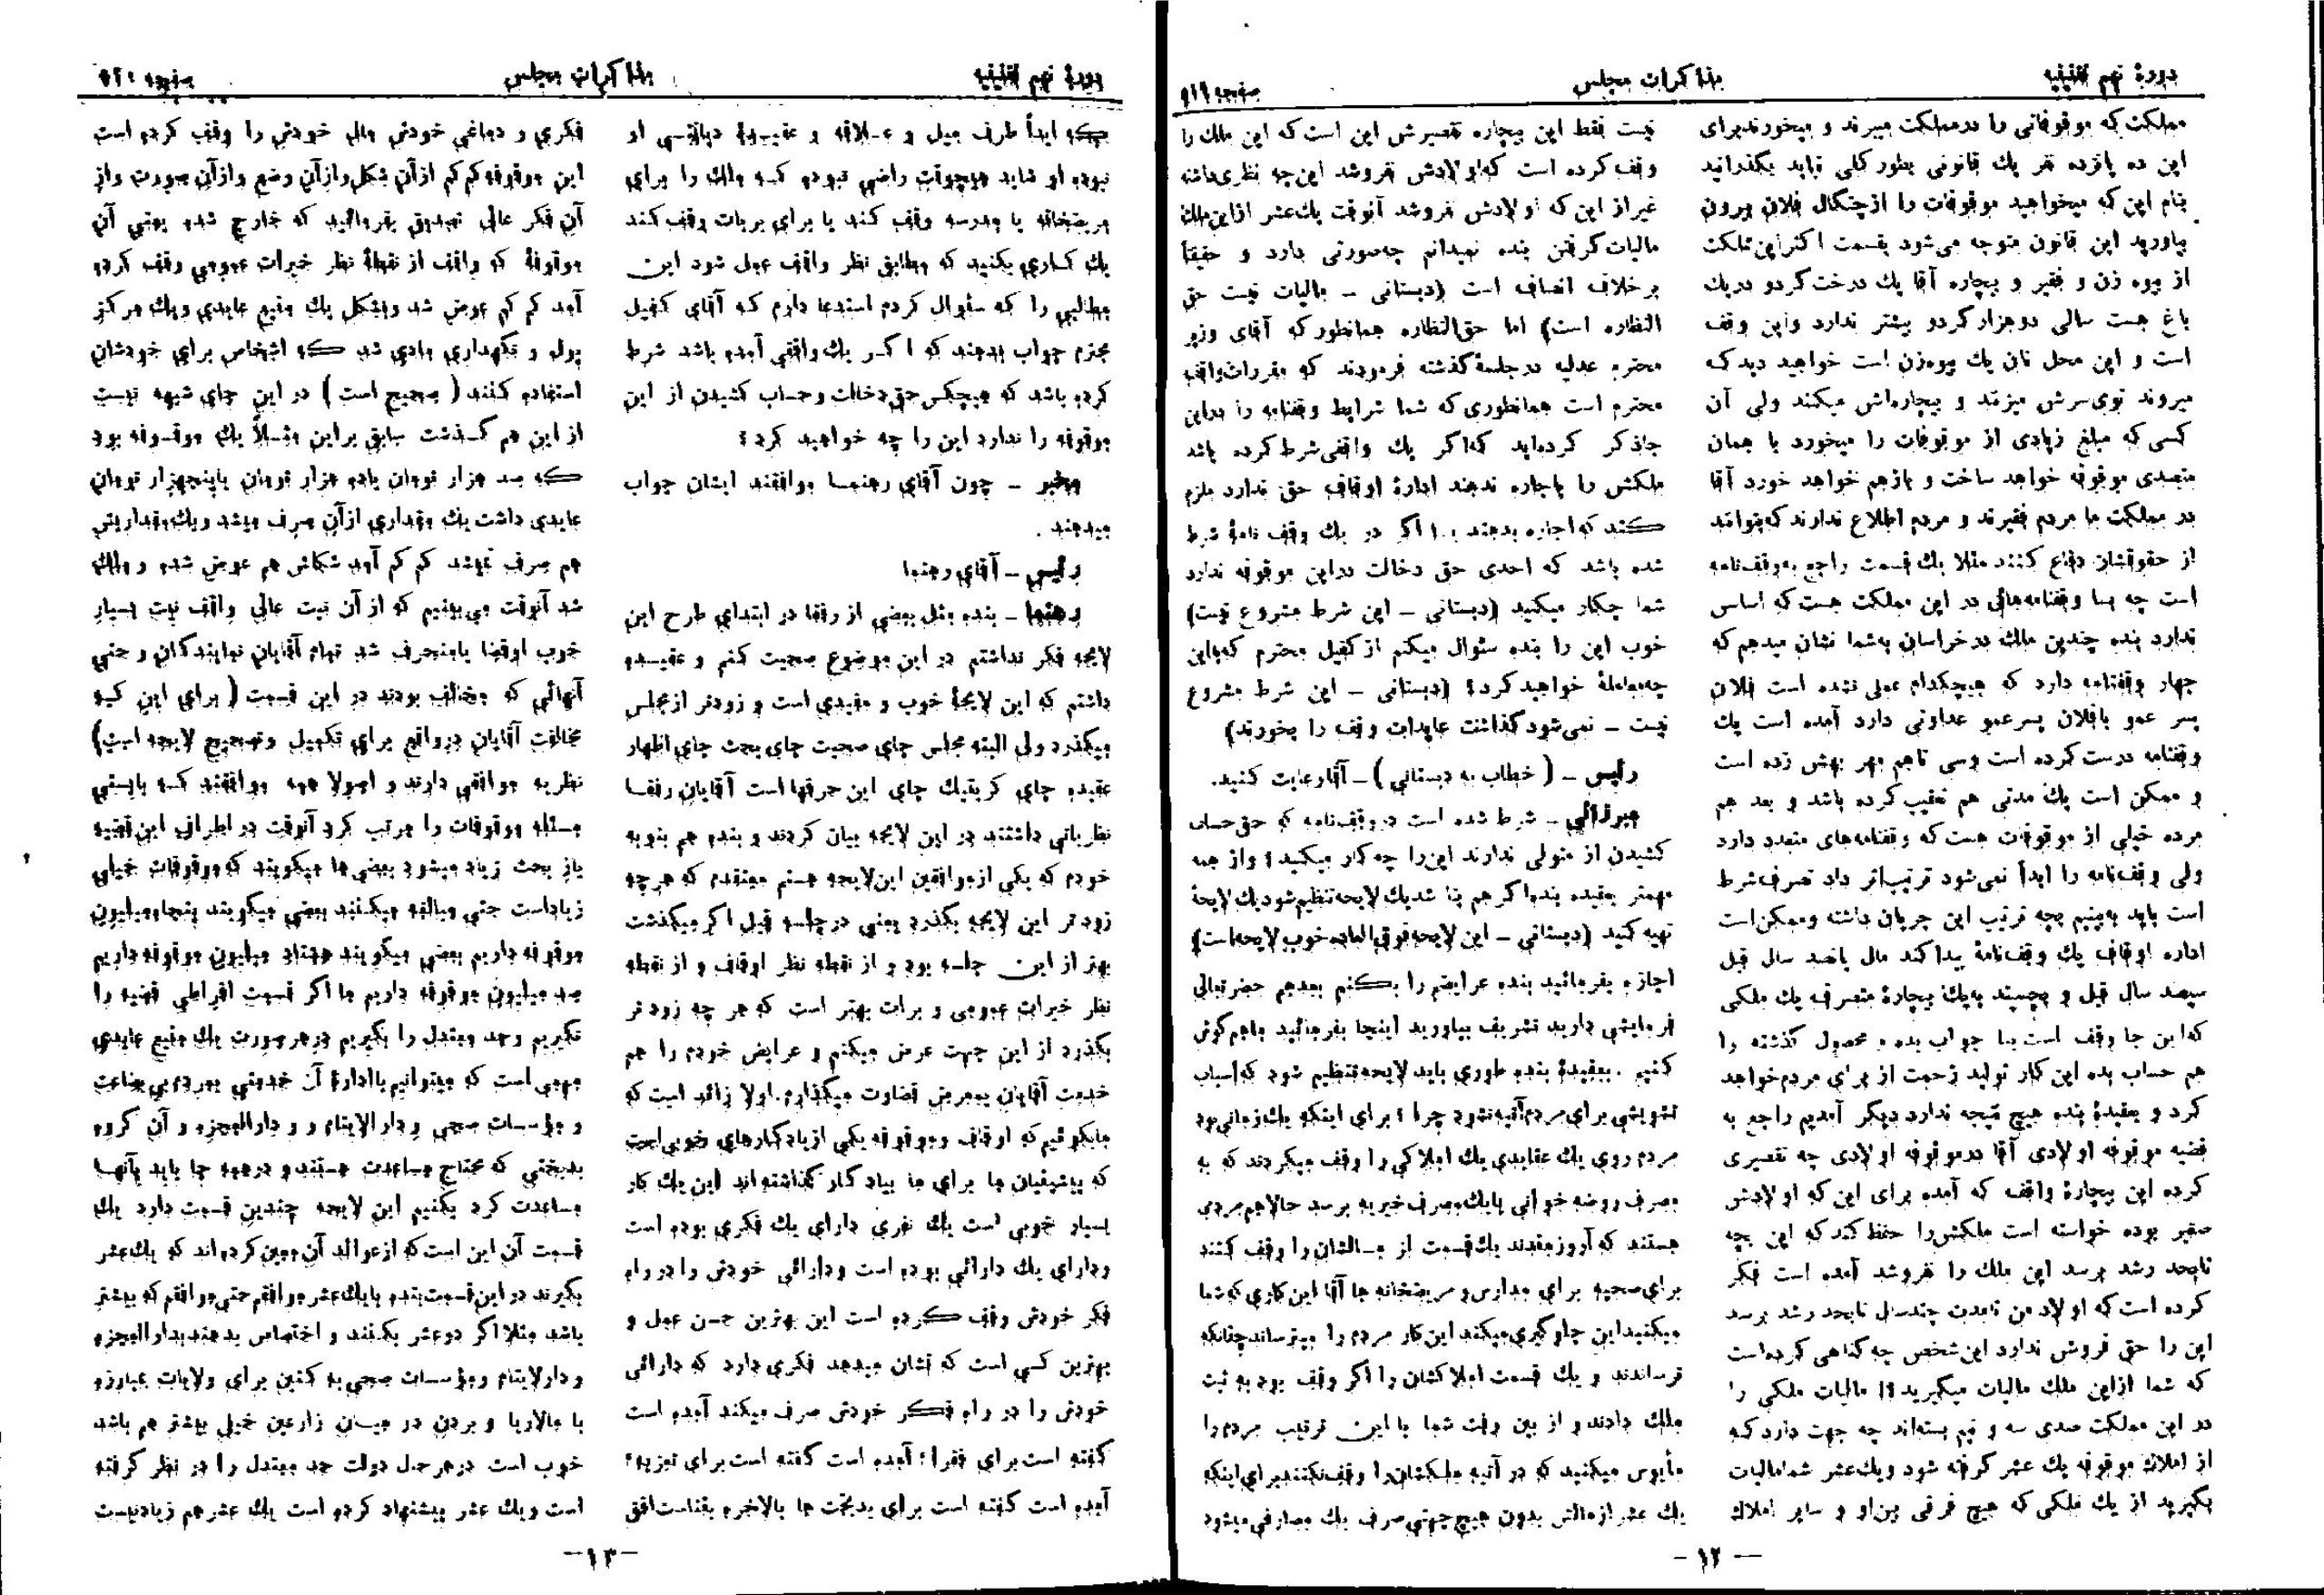 دورهٔ نهم تقنینیه
مذاکرات مجلس
صفحه ۹۱۹
مملکت که موقوفاتی را در مملکت میبرند و میخورند برای
این ده پانزده نفر یك قانونی بطور کلی نباید بگذرانید
بنام این که میخواهید موقوفات را از چنگال فلان بیرون
بیاورید این قانون متوجه می‌شود بقسمت اکثر این مملکت
از بیوه زن و فقیر و بیچاره آقا یك درخت گردو در یك
باغ هست سالی دوهزار گردو بیشتر ندارد و این وقف
است و این محل نان یك بیوه‌زن است خواهید دید که
میروند توی سرش میزنند و بیچاره‌اش میکنند ولی آن
کسی که مبلغ زیادی از موقوفات را میخورد با همان
متصدی موقوفه خواهد ساخت و بازهم خواهد خورد آقا
در مملکت ما مردم فقیرند و مردم اطلاع ندارند که بتوانند
از حقوقشان دفاع کنند مثلا یك قسمت راجع به وقف‌نامه
است چه بسا وقفنامه‌هائی در این مملکت هست که اساسی
ندارد بنده چندین ملك در خراسان به‌شما نشان میدهم که
چهار وقفنامه دارد که هیچکدام عملی نشده است فلان
پسر عمو بافلان پسرعمو عداوتی دارد آمده است یك
وقفنامه درست کرده است وسی تاهم مهر بهش زده است
و ممکن است یك مدتی هم تعقیب کرده باشد و بعد هم
مرده خیلی از موقوفات هست که وقفنامه‌های متعدد دارد
ولی وقف‌نامه را ابداً نمی‌شود ترتیب‌اثر داد تصرف شرط
است باید به‌بینیم بچه ترتیب این جریان داشته وممکن‌است
اداره اوقاف یك وقف‌نامهٔ پیدا کند مال پانصد سال قبل
سیصد سال قبل و بچسبد به‌یك بیچارهٔ متصرف یك ملکی
که‌این جا وقف است بیا جواب بده و محصول گذشته را
هم حساب بده این کار تولید زحمت از برای مردم خواهد
کرد و بعقیدهٔ بنده هیچ نتیجه ندارد دیگر آمدیم راجع به
قضیه موقوفه اولادی آقا در موقوفه اولادی چه تقصیری
کرده این بیچارهٔ واقف که آمده برای این که اولادش
صغیر بوده خواسته است ملکش را حفظ کند که این بچه
تابحد رشد برسد این ملك را نفروشد آمده است فکر
کرده است که اولاد من تامدت چندسال تابحد رشد برسد
این را حق فروش ندارد این شخص چه گناهی کرده‌است
که شما ازاین ملك مالیات میگیرید؟! مالیات ملکی را
در این مملکت صدی سه و نیم بسته‌اند چه جهت دارد که
از املاك موقوفه یك عشر گرفته شود ویك‌عشر شما مالیات
بگیرید از یك ملکی که هیچ فرقی بین‌او و سایر املاك
نیست فقط این بیچاره تقصیرش این است که این ملك را
وقف کرده است که‌اولادش نفروشد این‌چه نظری داشته
غیراز این که اولادش نفروشد آنوقت یك‌عشر ازاین ملك
مالیات گرفتن بنده نمیدانم چه‌صورتی دارد و حقیقتاً
برخلاف انصاف است (دبستانی - مالیات نیست حق
النظاره است) اما حق‌النظاره همانطور که آقای وزیر
محترم عدلیه درجلسهٔ گذشته فرمودند که مقررات‌واقف
محترم است همانطوری که شما شرایط وقفنامه را دراین
جاذکر کرده‌اید که‌اگر یك واقفی شرط کرده باشد
ملکش را باجاره ندهند ادارهٔ اوقاف حق ندارد ملزم
کند که اجاره بدهند اما اگر در یك وقف نامهٔ شرط
شده باشد که احدی حق دخالت دراین موقوفه ندارد
شما چکار میکنید (دبستانی - این شرط مشروع نیست)
خوب این را بنده سئوال میکنم از کفیل محترم که‌بااین
چه‌معاملهٔ خواهید کرد؟ (دبستانی - این شرط مشروع
نیست - نمی‌شود گذاشت عایدات وقف را بخورند)
رئیس - (خطاب به دبستانی) - آقا رعایت کنید.
میرزائی - شرط شده است در وقف‌نامه که حق حساب
کشیدن از متولی ندارند این‌را چه‌کار میکنید؟ واز همه
مهمتر بعقیده بنده‌اگر هم بنا شد یك لایحه تنظیم شود یك لایحهٔ
تهیه کنید (دبستانی - این لایحه فوق‌العاده خوب لایحه‌است)
اجازه بفرمائید بنده عرایضم را بکنم بعدهم حضرتعالی
فرمایشی دارید تشریف بیاورید اینجا بفرمائید ماهم‌گوش
کنیم . بعقیدهٔ بنده طوری باید لایحه تنظیم شود که اسباب
تشویشی برای مردم آتیه نشود چرا؟ برای اینکه یك‌زمانی بود
مردم روی یك عقایدی یك املاکی را وقف میکردند که به
مصرف روضه‌خوانی یا یك مصرف خیریه برسد حالا هم مردمی
هستند که آرزومندند یك قسمت از مالشان را وقف کنند
برای صحیه برای مدارس و مریضخانه ها آقا این کاری که شما
میکنید این جلوگیری میکند این کار مردم را میترساند چنانکه
ترساندند و یك قسمت املاکشان را اگر وقف بود به ثبت
ملك دادند و از بین رفت شما با این ترتیب مردم را
مأیوس میکنید که در آتیه ملکشان‌را وقف نکنند برای اینکه
یك عشر ازمالش بدون هیچ جهتی صرف یك مصارفی میشود
- ۱۲ -
دورهٔ نهم تقنینیه
مذاکرات مجلس
صفحه ۹۲۰
که ابداً طرف میل و علاقه و عقیدهٔ دیانتی او
نبوده او شاید هیچوقت راضی نبوده که ملك را برای
مریضخانه یا مدرسه وقف کند یا برای بریات وقف‌کند
یك کاری بکنید که مطابق نظر واقف عمل شود این
مطالبی را که سئوال کردم استدعا دارم که آقای کفیل
محترم جواب بدهند که اگر یك واقفی آمده باشد شرط
کرده باشد که هیچکس حق دخالت و حساب کشیدن از این
موقوفه را ندارد این را چه خواهید کرد؟
مخبر - چون آقای رهنما موافقند ایشان جواب
میدهند .
رئیس - آقای رهنما
رهنما - بنده مثل بعضی از رفقا در ابتدای طرح این
لایحه فکر نداشتم در این موضوع صحبت کنم و عقیده
داشتم که این لایحهٔ خوب و مفیدی است و زودتر از مجلس
میگذرد ولی البته مجلس جای صحبت جای بحث جای اظهار
عقیده جای کریتیك جای این حرفها است آقایان رفقا
نظریاتی داشتند در این لایحه بیان کردند و بنده هم بنوبه
خودم که یکی ازموافقین این‌لایحه هستم معتقدم که هرچه
زودتر این لایحه بگذرد یعنی درجلسه قبل اگر میگذشت
بهتر از این جلسه بود و از نقطه نظر اوقاف و از نقطه
نظر خیرات عمومی و برات بهتر است که هر چه زودتر
بگذرد از این جهت عرض میکنم و عرایض خودم را هم
خدمت آقایان بمعرض قضاوت میگذارم. اولا زائد است که
مابگوئیم که اوقاف وموقوفه یکی ازیادگارهای خوبی است
که پیشینیان ما برای ما بیادگار گذاشته‌اند این یك کار
بسیار خوبی است یك نفری دارای یك فکری بوده است
ودارای یك دارائی بوده است ودارائی خودش را در راه
فکر خودش وقف کرده است این بهترین حسن عمل و
بهترین کسی است که نشان میدهد فکری دارد که دارائی
خودش را در راه فکر خودش صرف میکند آمده است
گفته است برای فقراء؛ آمده است گفته است برای تعزیه؛
آمده است گفته است برای بدبخت ها بالاخره
فکری و دماغی خودش مال خودش را وقف کرده است
این موقوفه کم کم ازآن شکل وازآن وضع وازآن صورت واز
آن فکر عالی تصدیق بفرمائید که خارج شده یعنی آن
موقوفهٔ که واقف از نقطهٔ نظر خیرات عمومی وقف کرده
آمد کم کم عوض شد وبشکل یك منبع عایدی ویك مرکز
پول و نگهداری مادی شد که اشخاص برای خودشان
استفاده کنند (صحیح است) در این جای شبهه نیست
از این هم گذشت سابق براین مثلاً یك موقوفه بود
که صد هزار تومان یاده هزار تومان یاپنجهزار تومان
عایدی داشت یك مقداری ازآن صرف میشد ویك‌مقداریش
هم صرف نمیشد کم کم آمد شکلش هم عوض شده و ملك
شد آنوقت می‌بینیم که از آن نیت عالی واقف نیت بسیار
خوب اوقضایا منحرف شد تمام آقایان نمایندگان و حتی
آنهائی که مخالف بودند در این قسمت (برای این که
مخالفت آقایان درواقع برای تکمیل وتصحیح لایحه است)
نظریه موافقی دارند و اصولا همه موافقند که بایستی
مسئله موقوفات را مرتب کرد آنوقت در اطراف این قضیه
باز بحث زیاد میشود بعضی‌ها میگویند که موقوفات خیلی
زیاداست حتی مبالغه میکنند بعضی میگویند پنجاه میلیون
موقوفه داریم بعضی میگویند هفتاد میلیون موقوفه داریم
صد میلیون موقوفه داریم ما اگر قسمت افراطی قضیه را
نگیریم وحد معتدل را بگیریم درهرصورت یك منبع عایدی
مهمی است که میتوانیم باادارهٔ آن خدمتی بمردم بی‌بضاعت
و مؤسسات صحی و دارالایتام و و دارالعجزه و آن گروه
بدبختی که محتاج مساعدت هستند و درهمه جا باید بآنها
مساعدت کرد بکنیم این لایحه چندین قسمت دارد یك
قسمت آن این است که ازعواید آن معین کرده‌اند که یك عشر
بگیرند در این قسمت بنده بایك‌عشر موافقم حتی موافقم که بیشتر
باشد مثلا اگر دوعشر بکنند و اختصاص بدهند بدارالعجزه
و دارلایتام ومؤسسات صحی به کنین برای ولایات مبارزه
با مالاریا و بردن در میان زارعین خیلی بیشتر هم باشد
خوب است درهرحال دولت حد معتدل را در نظر گرفته
است ویك عشر پیشنهاد کرده است یك عشرهم زیادنیست
-۱۳-